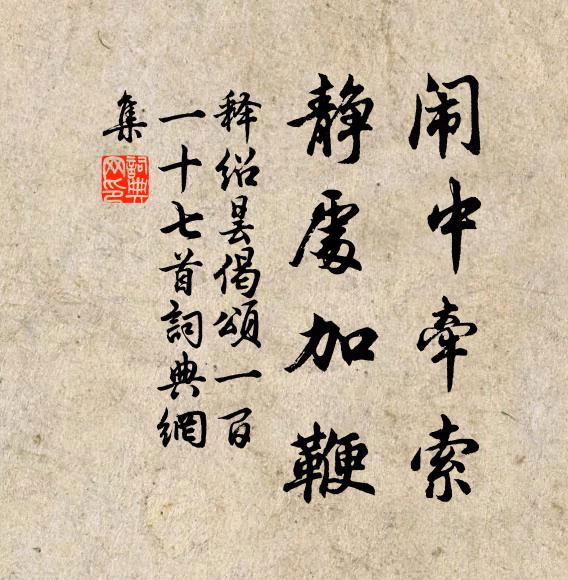 闹中牵索
静處加鞭
释绍昙偈頌一百
一十七首詞典網
集
詞典
网印